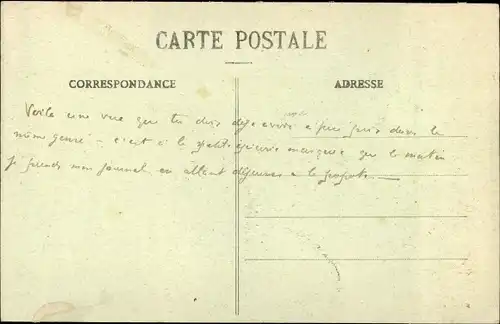 CARTE POSTALE
CORRESPONDANCE
ADRESSE
Voila une vue que tu dois déjà avoir à peu près dans le
même genre - c'est à la petite épicerie marquée que le matin
je prends mon journal en allant déjeuner à la popote